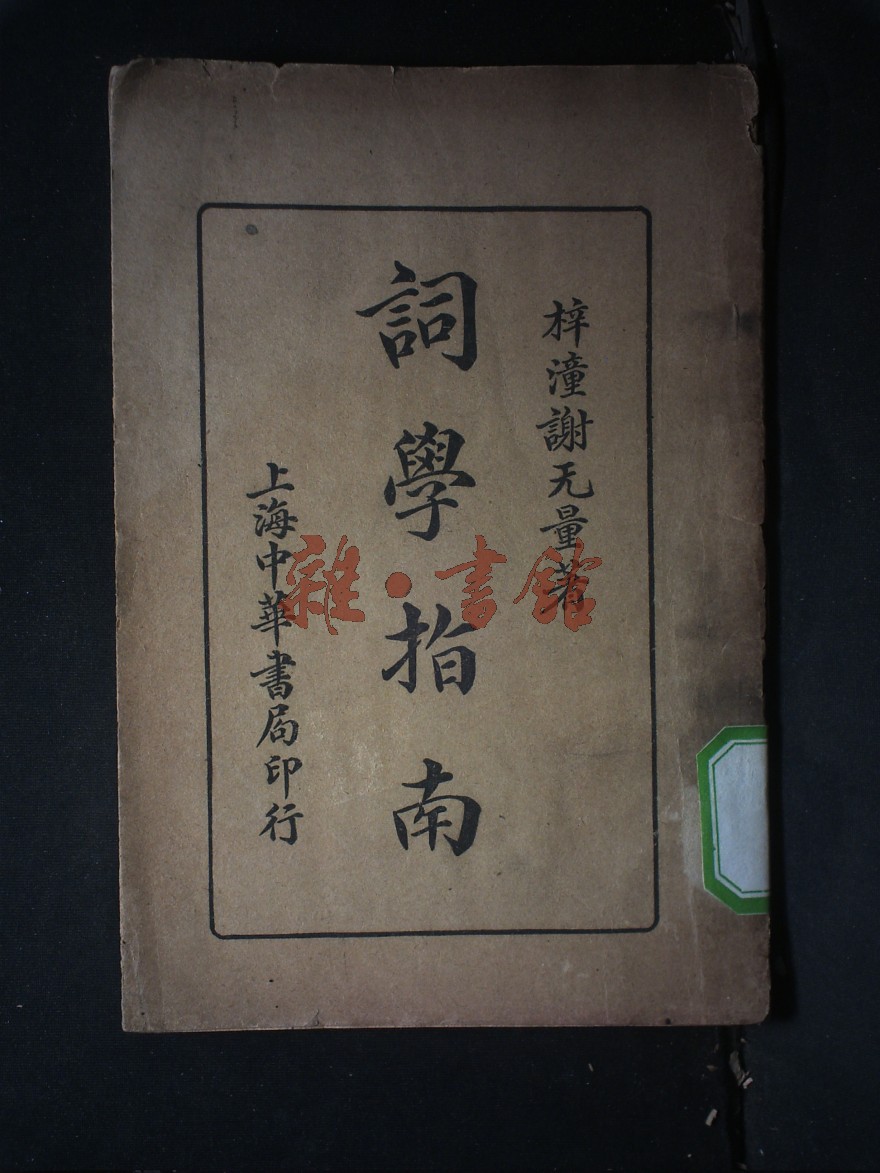 梓潼謝无量著
詞學指南
上海中華書局印行
雜·書館